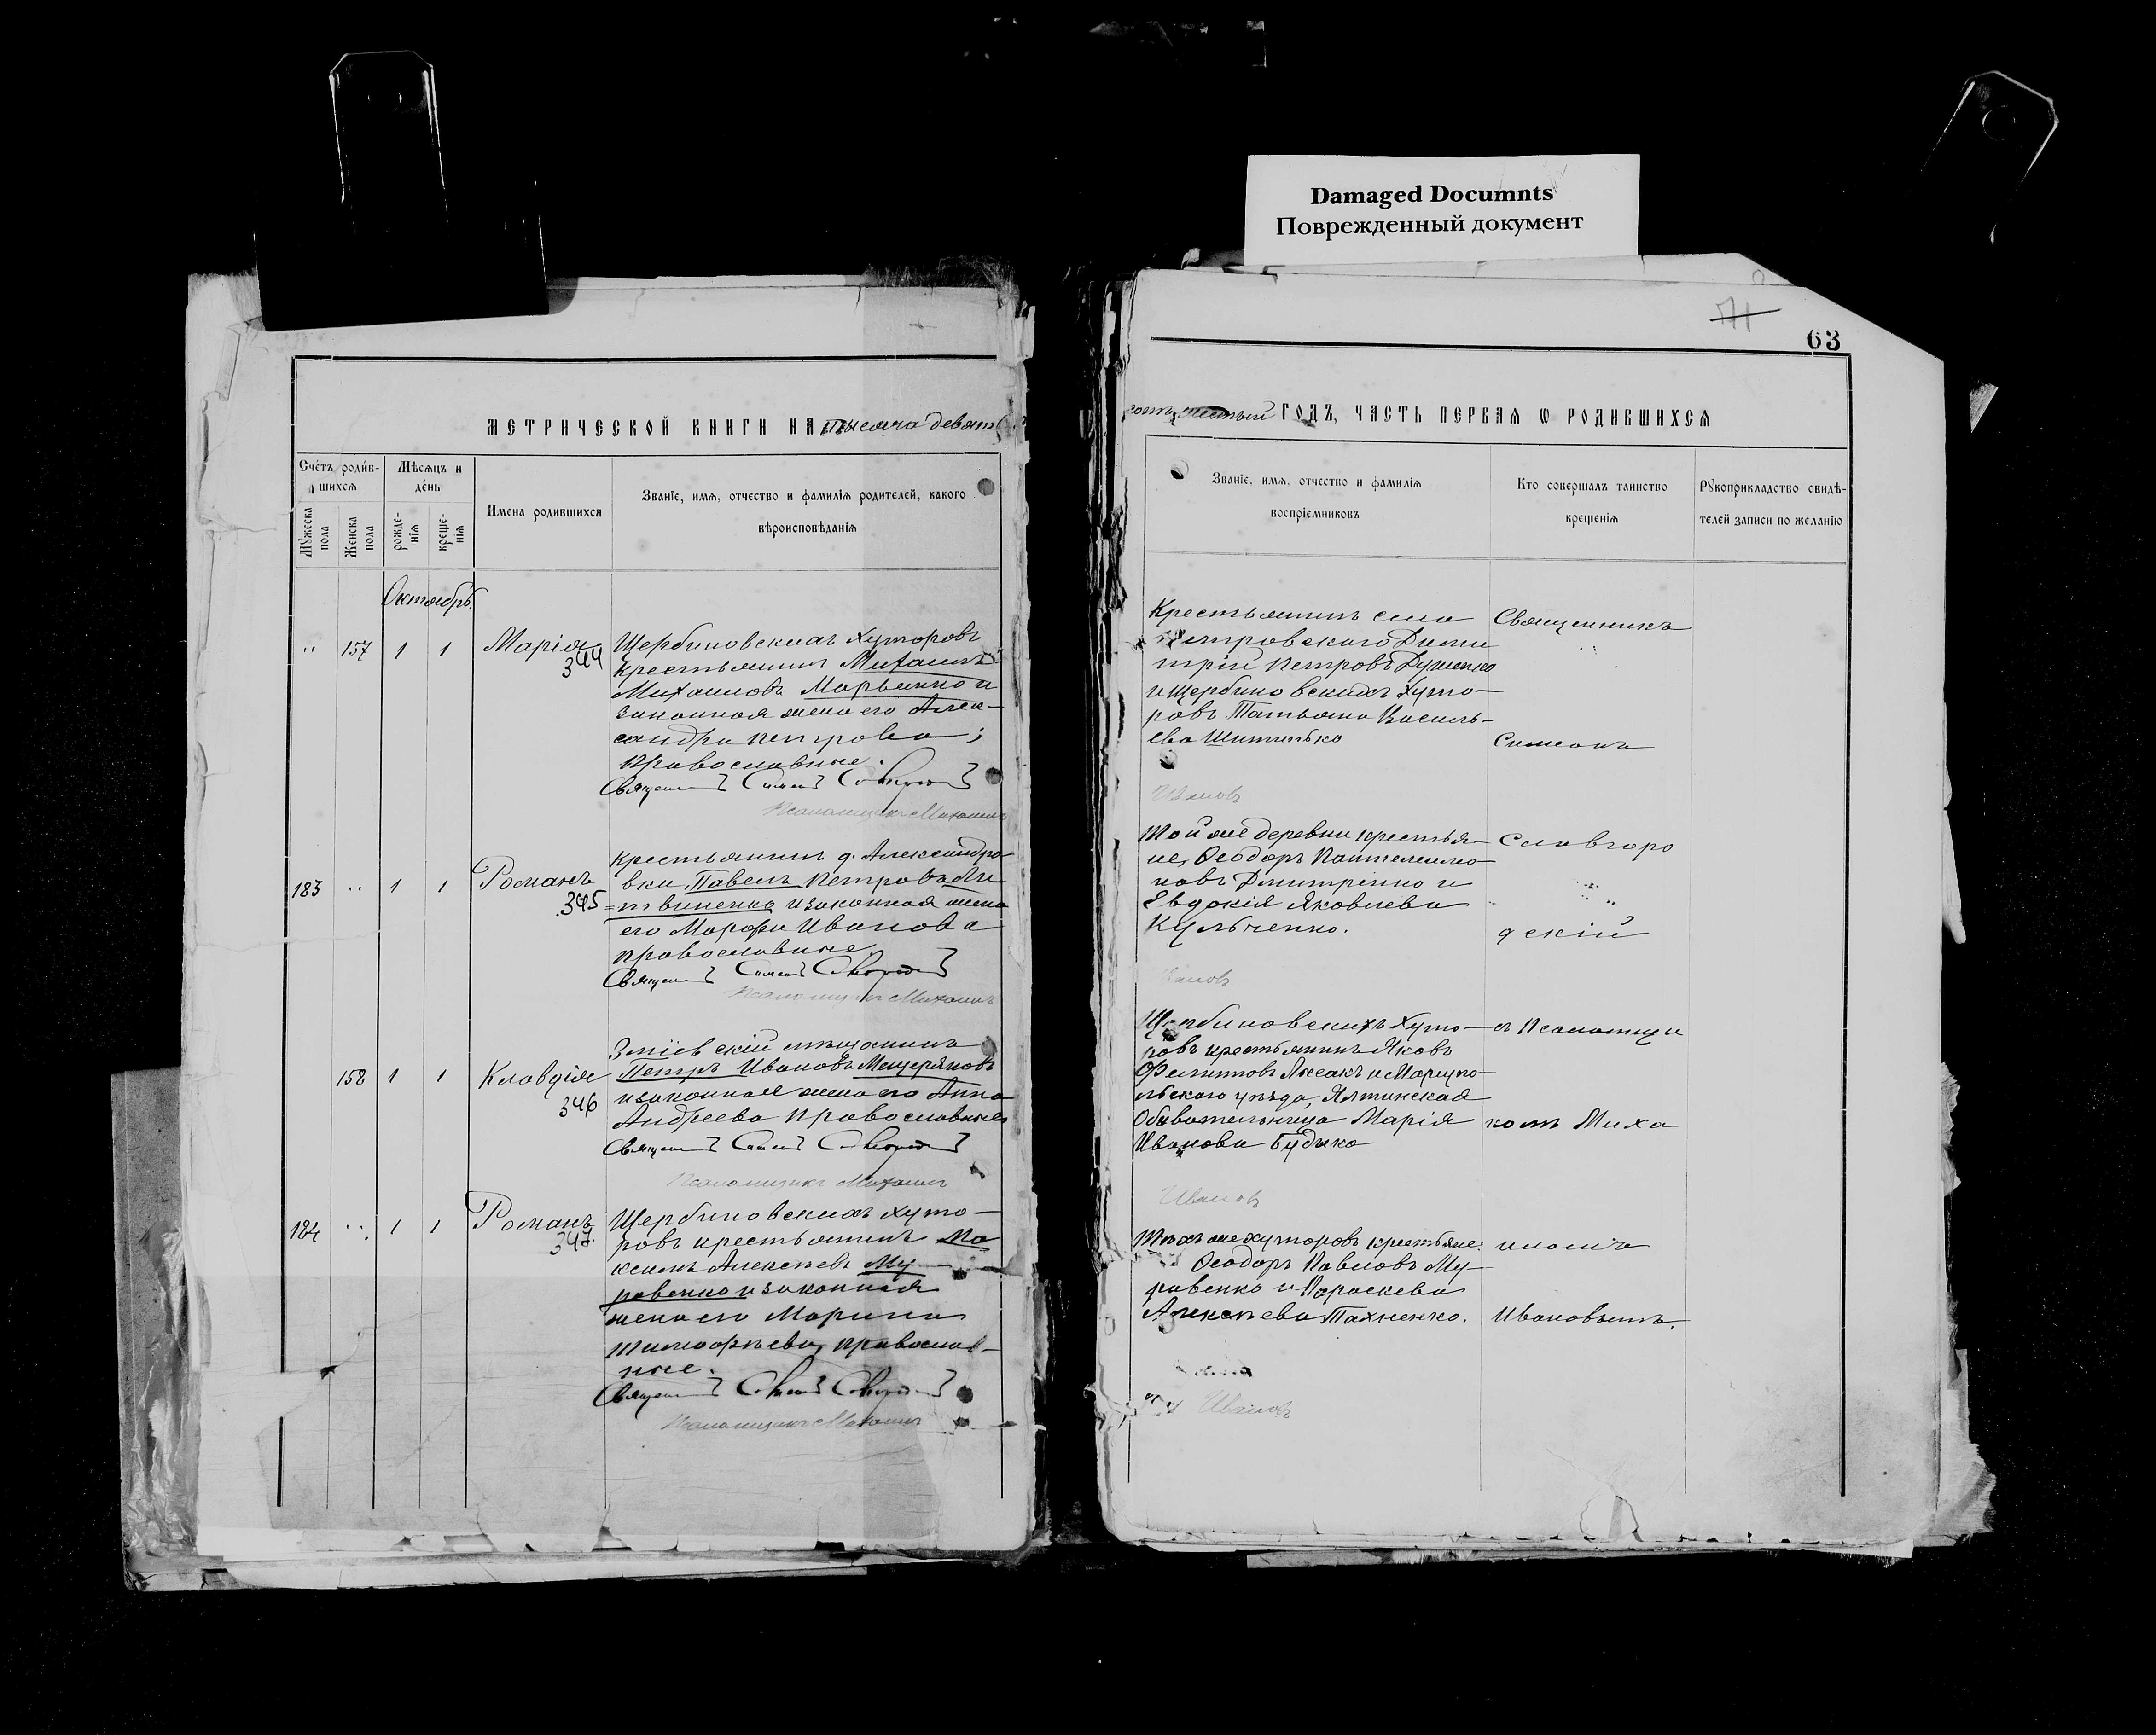 Damaged Documnts
Поврежденный документ
71
63
МЕТРИЧЕСКОЙ КНИГИ НА тысяча девят
сотъ шестый ГОДЪ, ЧАСТЬ ПЕРВАЯ Ѡ РОДИВШИХСЯ
Счетъ родив-
шихся
Мѣсяцъ и
день
Мужеска
пола
Женска
пола
рожде-
нія
креще-
нія
Имена родившихся
Званіе, имя, отчество и фамилія родителей, какого
вѣроисповѣданія
Званіе, имя, отчество и фамилія
воспріемниковъ
Кто совершалъ таинство
крещенія
Рукоприкладство свидѣ-
телей записи по желанію
Октябрь.
157 1 1 Марія
344
Щербиновскихъ хуторовъ
крестьянинъ Михаилъ
Михаиловъ Марьенко и
законная жена его Алек-
сандра Петрова;
православные.
Священ Симеон
Псаломщикъ Михаилъ
Крестьянинъ села
Петровскаго Дими
трій Петровъ Душенко
и Щербиновскихъ хуто-
ровъ Татьяна Василь-
ева
Священникъ
Симеонъ
Ивановъ
183 1 1 Романъ
345
Крестьянинъ д. Александро-
вки Павелъ Петровъ Ли
=твиненко и законная жена
его Марфа Иванова
православные
Священ Симеон
Псаломщикъ Михаилъ
Той же деревни крестья-
не, Ѳеодоръ Пантелеимо-
новъ Дмитренко и
Евдокія Яковлева
Кульченко.
Славгоро
дскій
Ивановъ
158 1 1 Клавдія
346
Зміевскій мѣщанинъ
Петръ Ивановъ Мещеряковъ
и законная жена его Анна
Андреева православные
Священ Симеон
Псаломщикъ Михаилъ
Щербиновскихъ хуто-
ровъ крестьянинъ Яковъ
Филиповъ Лисакъ и Маріупо-
льскаго уѣзда, Ялтинская
Обывательница Марія
Иванова Будыко
съ Псаломщи
комъ Миха
Ивановъ
184 1 1 Романъ
347.
Щербиновскихъ хуто-
ровъ крестьянинъ Ма
ксимъ Алексѣевъ Му
равенко и законная
жена его Марина
Тимофѣева, православ-
ные.
Священ Симеон
Псаломщикъ Михаилъ
Тѣхъ же хуторовъ крестьяне:
Ѳеодоръ Павловъ Му-
равенко и Параскева
Алексѣева Пахненко.
иломъ
Ивановымъ.
Ивановъ